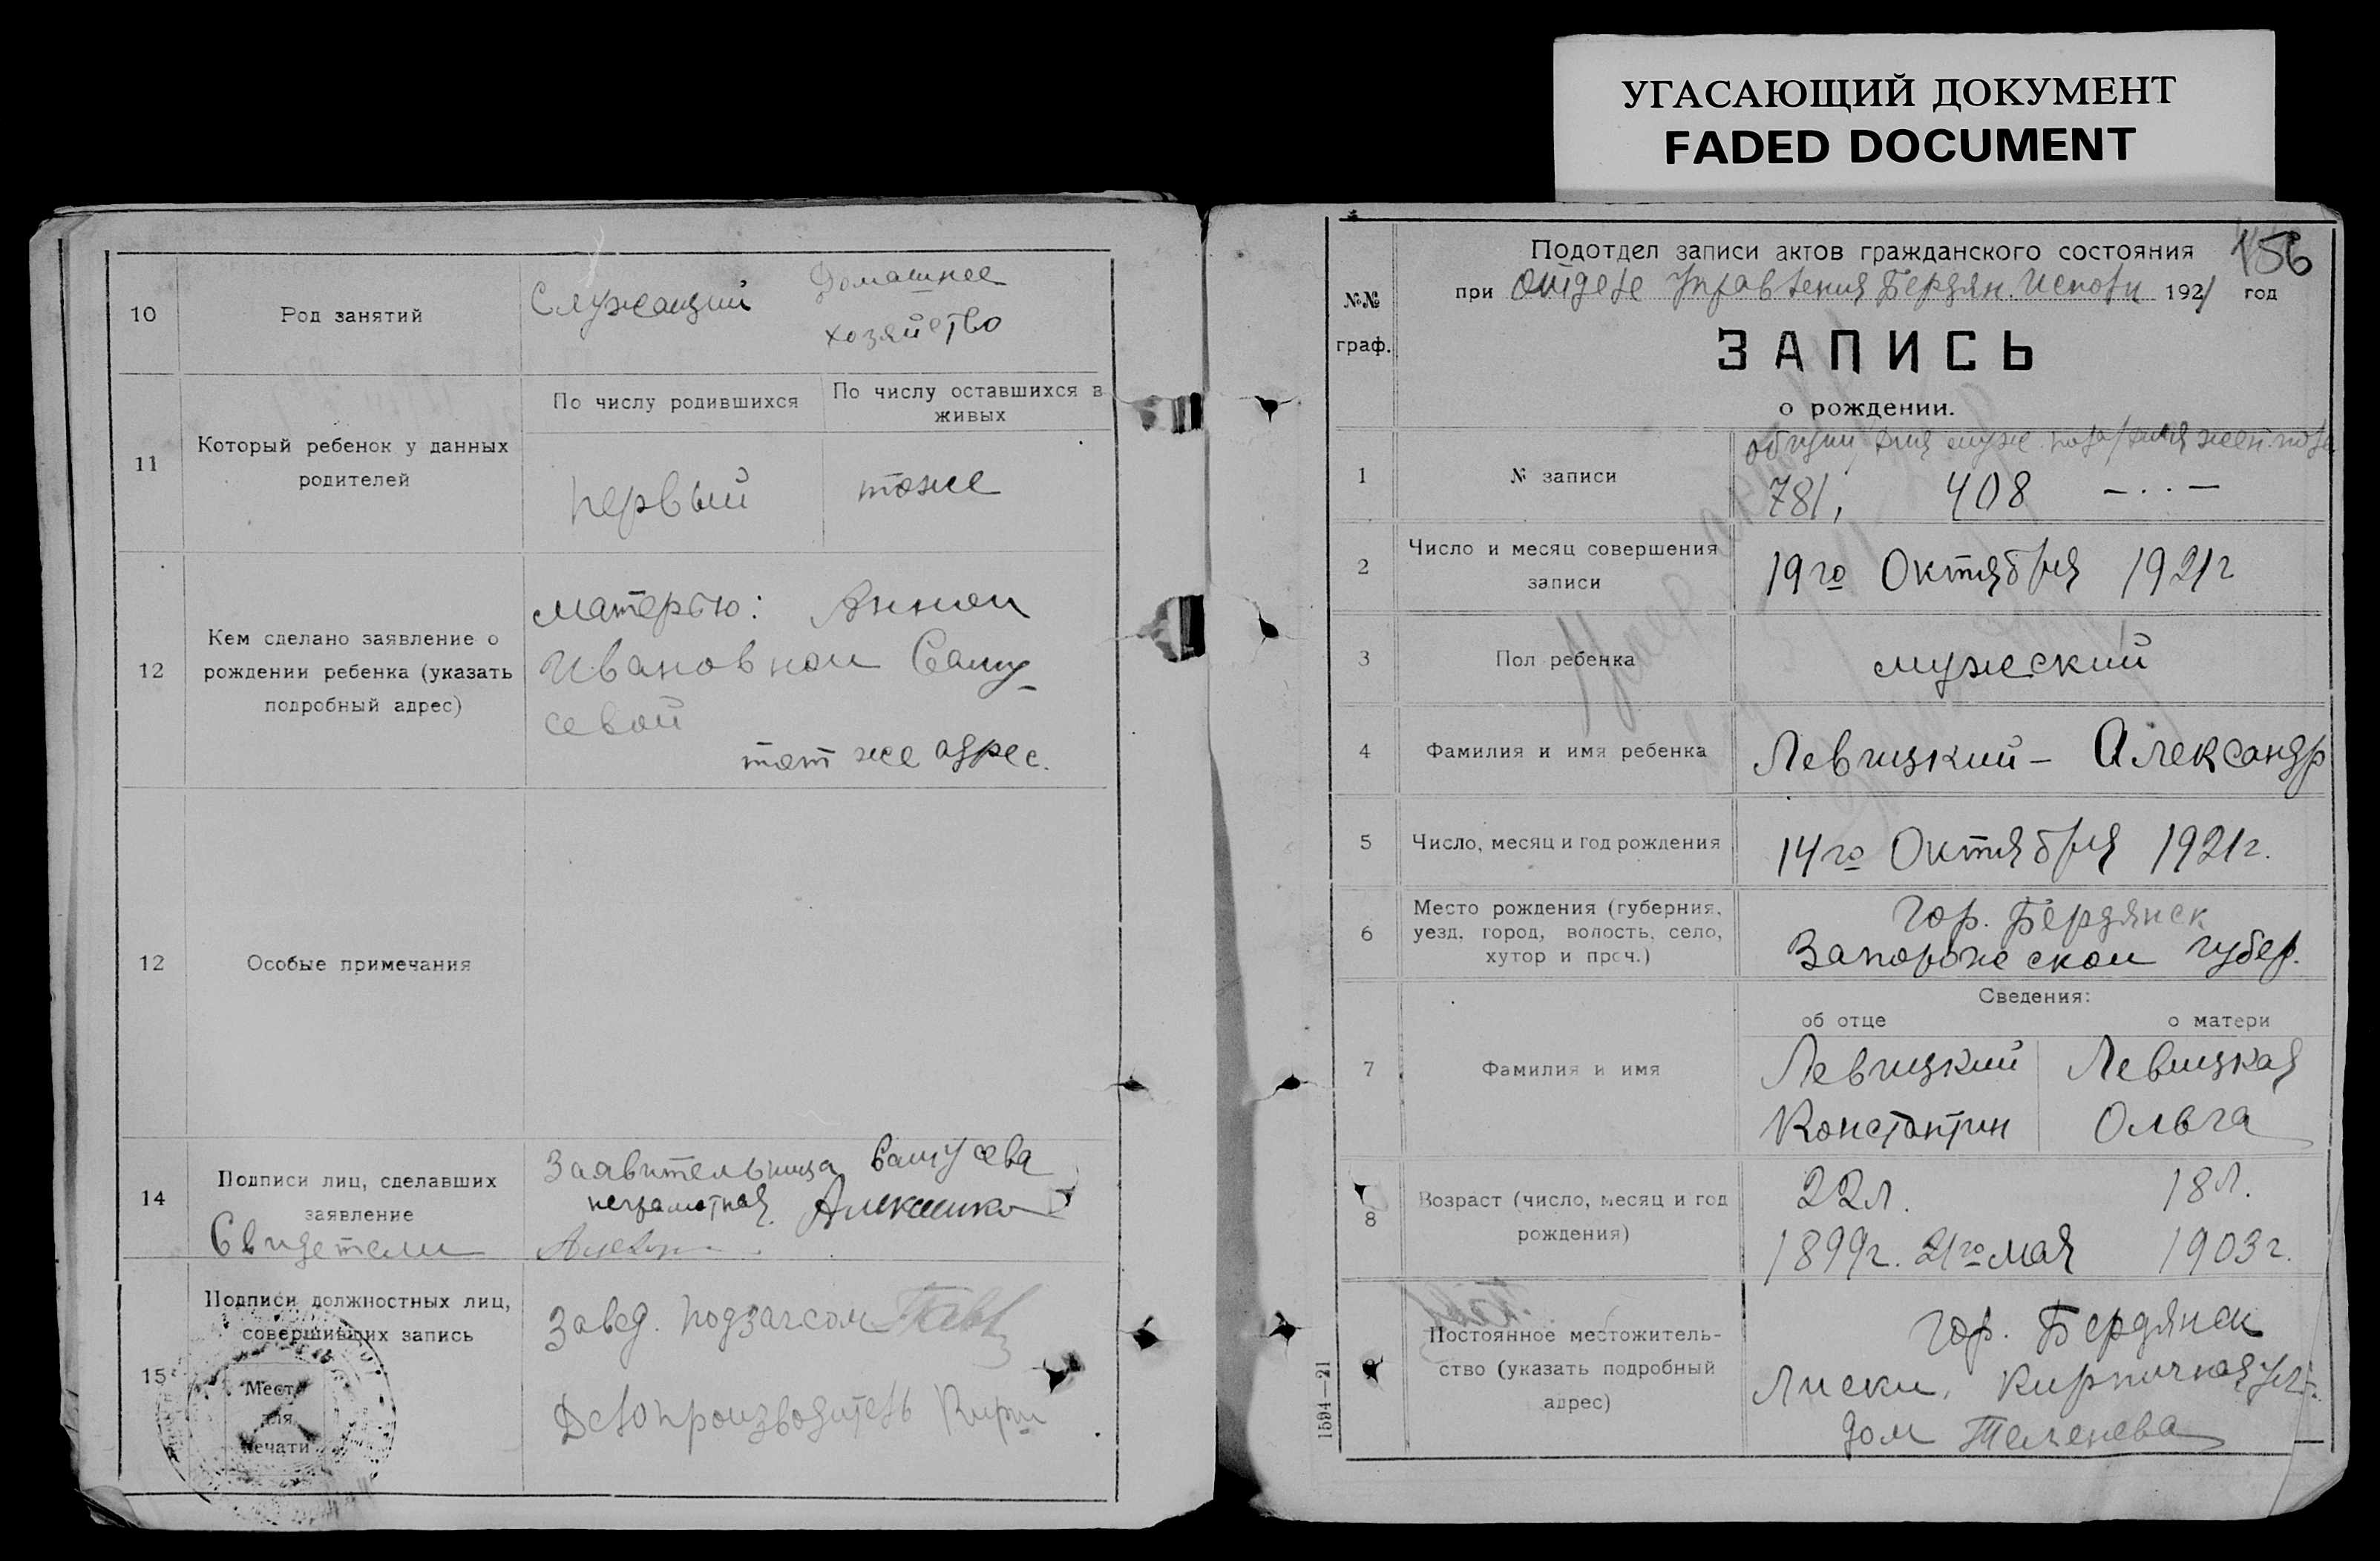 УГАСАЮЩИЙ ДОКУМЕНТ
FADED DOCUMENT
10
Род занятий
Служащий
Домашнее
хозяйство
11
Который ребенок у данных
родителей
По числу родившихся
По числу оставшихся в
живых
первый
тоже
12
Кем сделано заявление о
рождении ребенка (указать
подробный адрес)
матерью: Анной
Ивановной СамУ-
севой
тот же адрес.
12
Особые примечания
14
Подписи лиц, сделавших
заявление
Свидетели
Заявительница
неграмотная.
15
Подписи должностных лиц,
совершивших запись
Место
для
печати
Завед. подзагсом
Делопроизводитель
№№
граф.
Подотдел записи актов гражданского состояния
156
при Отделе Управления Бердян. Исполк 1921 год
ЗАПИСЬ
о рождении.
1
№ записи
общий, для муж. пола, для жен. пола
781, 408 —··—
2
Число и месяц совершения
записи
19го Октября 1921г
3
Пол ребенка
мужеский
4
Фамилия и имя ребенка
Левицкий – Александр
5
Число, месяц и год рождения
14го Октября 1921г.
6
Место рождения (губерния,
уезд, город, волость, село,
хутор и проч.)
Гор. Бердянск
Запорожской губер.
Сведения:
об отце
о матери
7
Фамилия и имя
Левицкий
Константин
Левицкая
Ольга
8
Возраст (число, месяц и год
рождения)
22л.
18л.
1899г. 21го мая
1903г.
Постоянное местожитель-
ство (указать подробный
адрес)
гор. Бердянск
Лиски, Кирпичная ул.
дом
1594—21